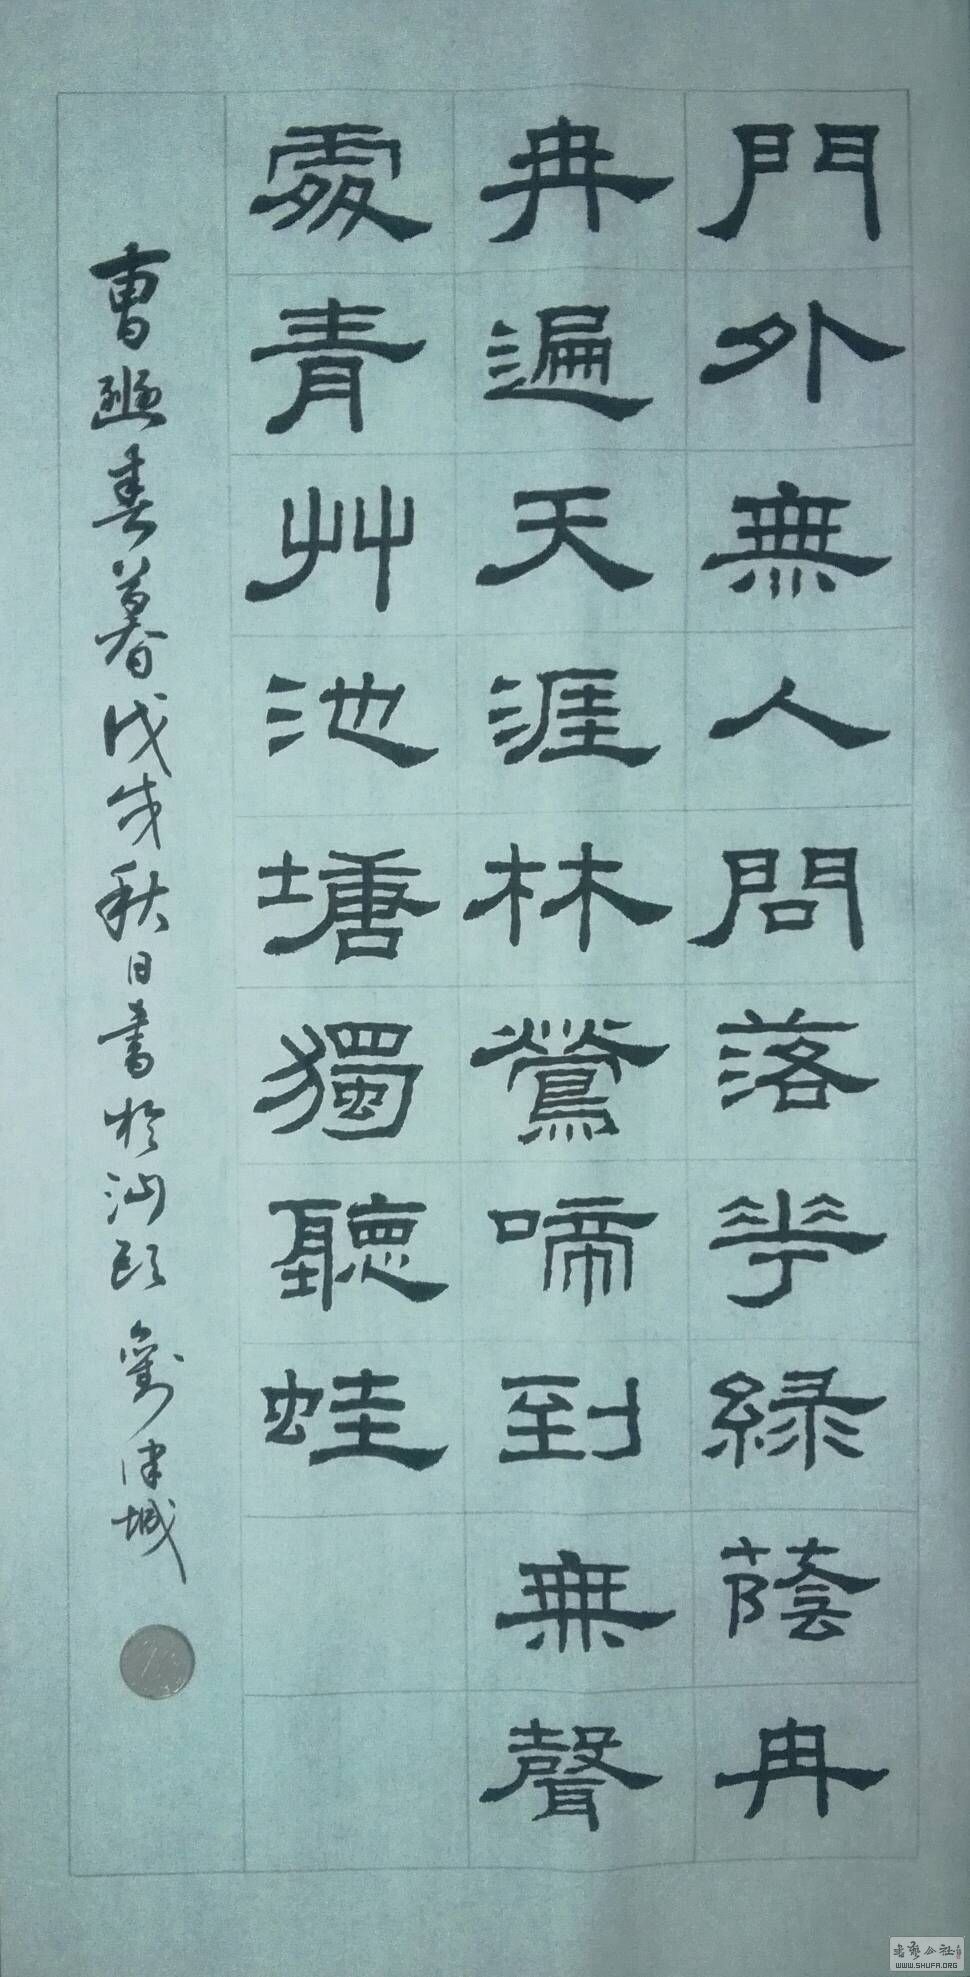 門外無人問落花綠蔭冉
冉遍天涯林鶯啼到無聲
處青艸池塘獨聽蛙
曹豳春暮戊戌秋日書於汕頭劉津城
WWW.SHUFA.ORG